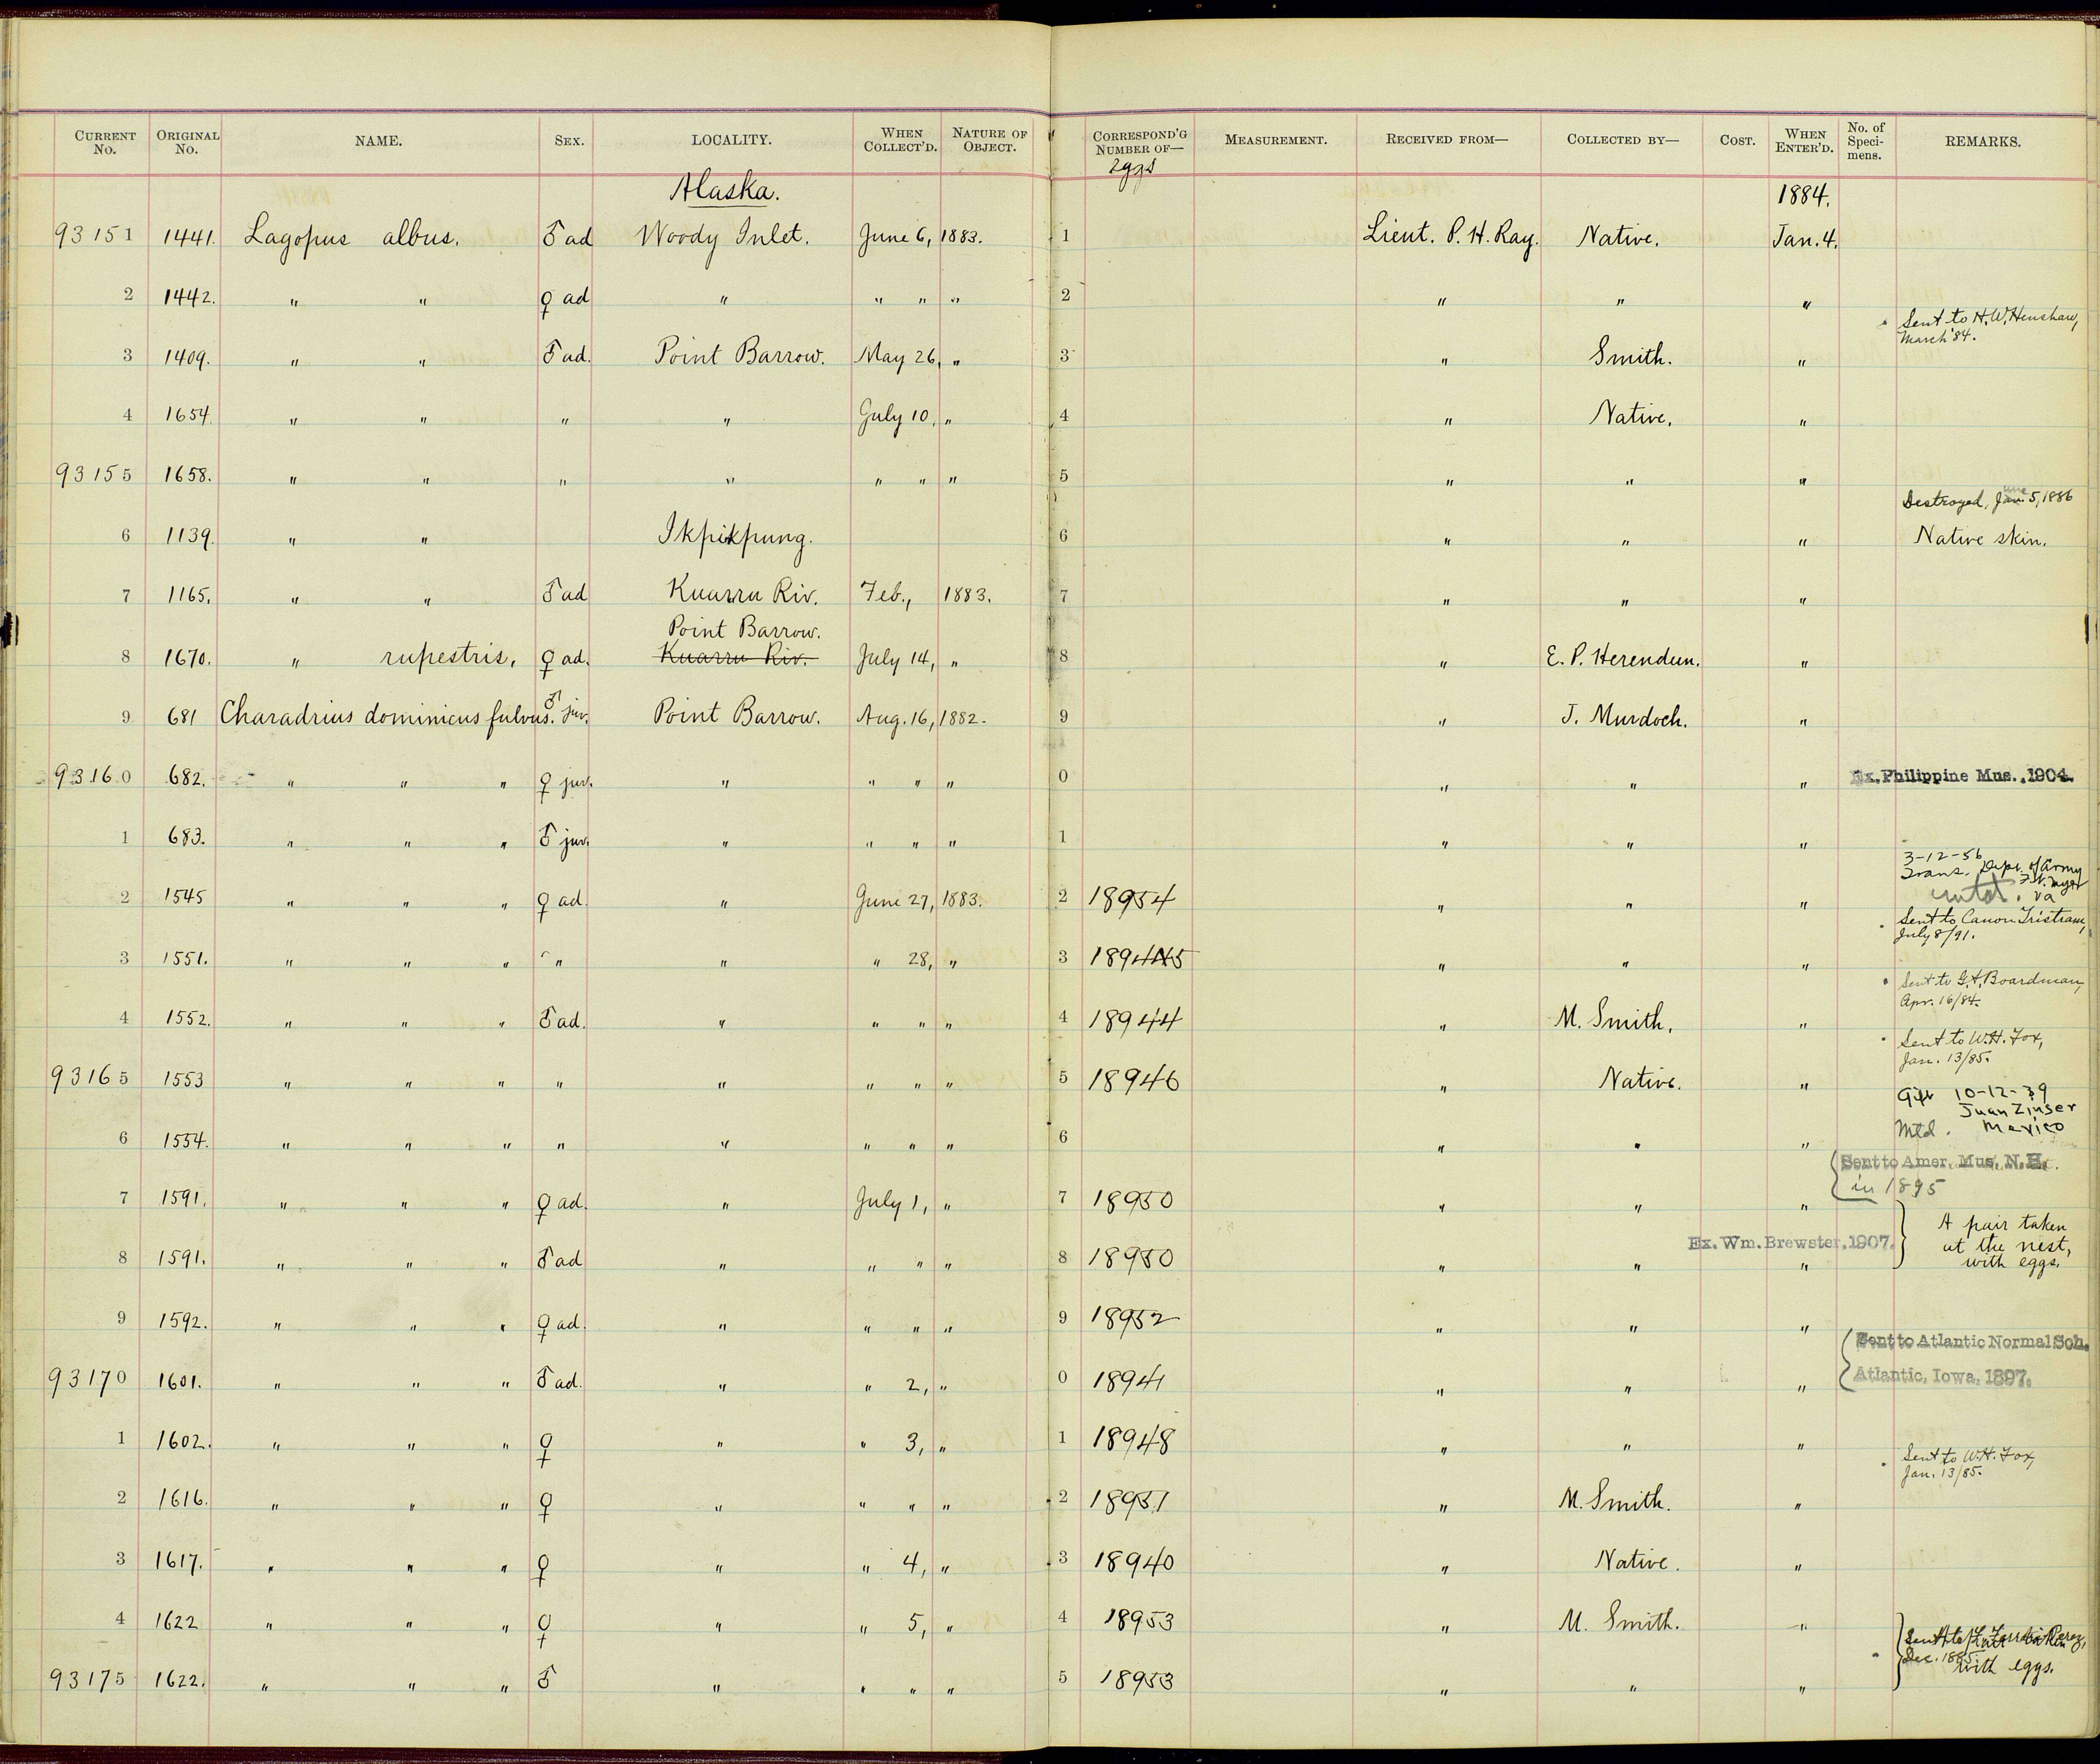 CURRENT No. ORIGINAL No. NAME. SEX. LOCALITY. WHEN COLLECT'D. NATURE OF OBJECT. CORRESPOND'G NUMBER OF— MEASUREMENT. RECEIVED FROM— COLLECTED BY— COST. WHEN ENTER'D. No. of Speci-mens. REMARKS.
eggs
Alaska. 1884.
93151 1441. Lagopus albus. ♂ ad Woody Inlet. June 6, 1883. 1 Lieut. P. H. Ray. Native. Jan. 4.
2 1442. " " ♀ ad " " " " 2 " " "
Sent to H. W. Henshaw,
March '84.
3 1409. " " ♂ ad. Point Barrow. May 26, " 3 " Smith. "
4 1654. " " " " July 10, " 4 " Native. "
93155 1658. " " " " " " " 5 " " "
Destroyed, June 5, 1886
6 1139. " " Ikpikpung. 6 " " " Native skin.
7 1165. " " ♂ ad Kuarru Riv. Feb., 1883. 7 " " "
Point Barrow.
8 1670. " rupestris, ♀ ad. Kuarru Riv. July 14, " 8 " E. P. Herendeen. "
9 681 Charadrius dominicus fulvus. ♂ juv. Point Barrow. Aug. 16, 1882. 9 " J. Murdoch. "
93160 682. " " " ♀ juv. " " " " 0 " " " Ex. Philippine Mus., 1904.
1 683. " " " ♂ juv. " " " " 1 " " "
3-12-56
Trans. Dept. of Army
Ft. Myer
Va
2 1545 " " " ♀ ad. " June 27, 1883. 2 18954 " " "
Sent to Canon Tristram,
July 8/91.
3 1551. " " " " " " 28, " 3 18945 " " "
Sent to G. A. Boardman,
Apr. 16/84.
4 1552. " " " ♂ ad. " " " " 4 18944 " M. Smith. "
Sent to W. H. Fox,
Jan. 13/85.
93165 1553 " " " " " " " " 5 18946 " Native. "
Gift 10-12-39
Juan Zinser
Mexico
6 1554. " " " " " " " " 6 " " "
Sent to Amer. Mus. N. H.
in 1895
7 1591. " " " ♀ ad. " July 1, " 7 18950 " " "
A pair taken
at the nest,
with eggs.
Ex. Wm. Brewster, 1907.
8 1591. " " " ♂ ad " " " " 8 18950 " " "
9 1592. " " " ♀ ad. " " " " 9 18952 " " "
Sent to Atlantic Normal Sch.
Atlantic, Iowa, 1897.
93170 1601. " " " ♂ ad. " " 2, " 0 18941 " " "
1 1602. " " " ♀ " " 3, " 1 18948 " " "
Sent to W. H. Fox,
Jan. 13/85.
2 1616. " " " ♀ " " " " 2 18951 " M. Smith. "
3 1617. " " " ♀ " " 4, " 3 18940 " Native. "
4 1622 " " " ♀ " " 5, " 4 18953 " M. Smith. "
Dec. 1885.
with eggs.
93175 1622. " " " ♂ " " " " 5 18953 " " "